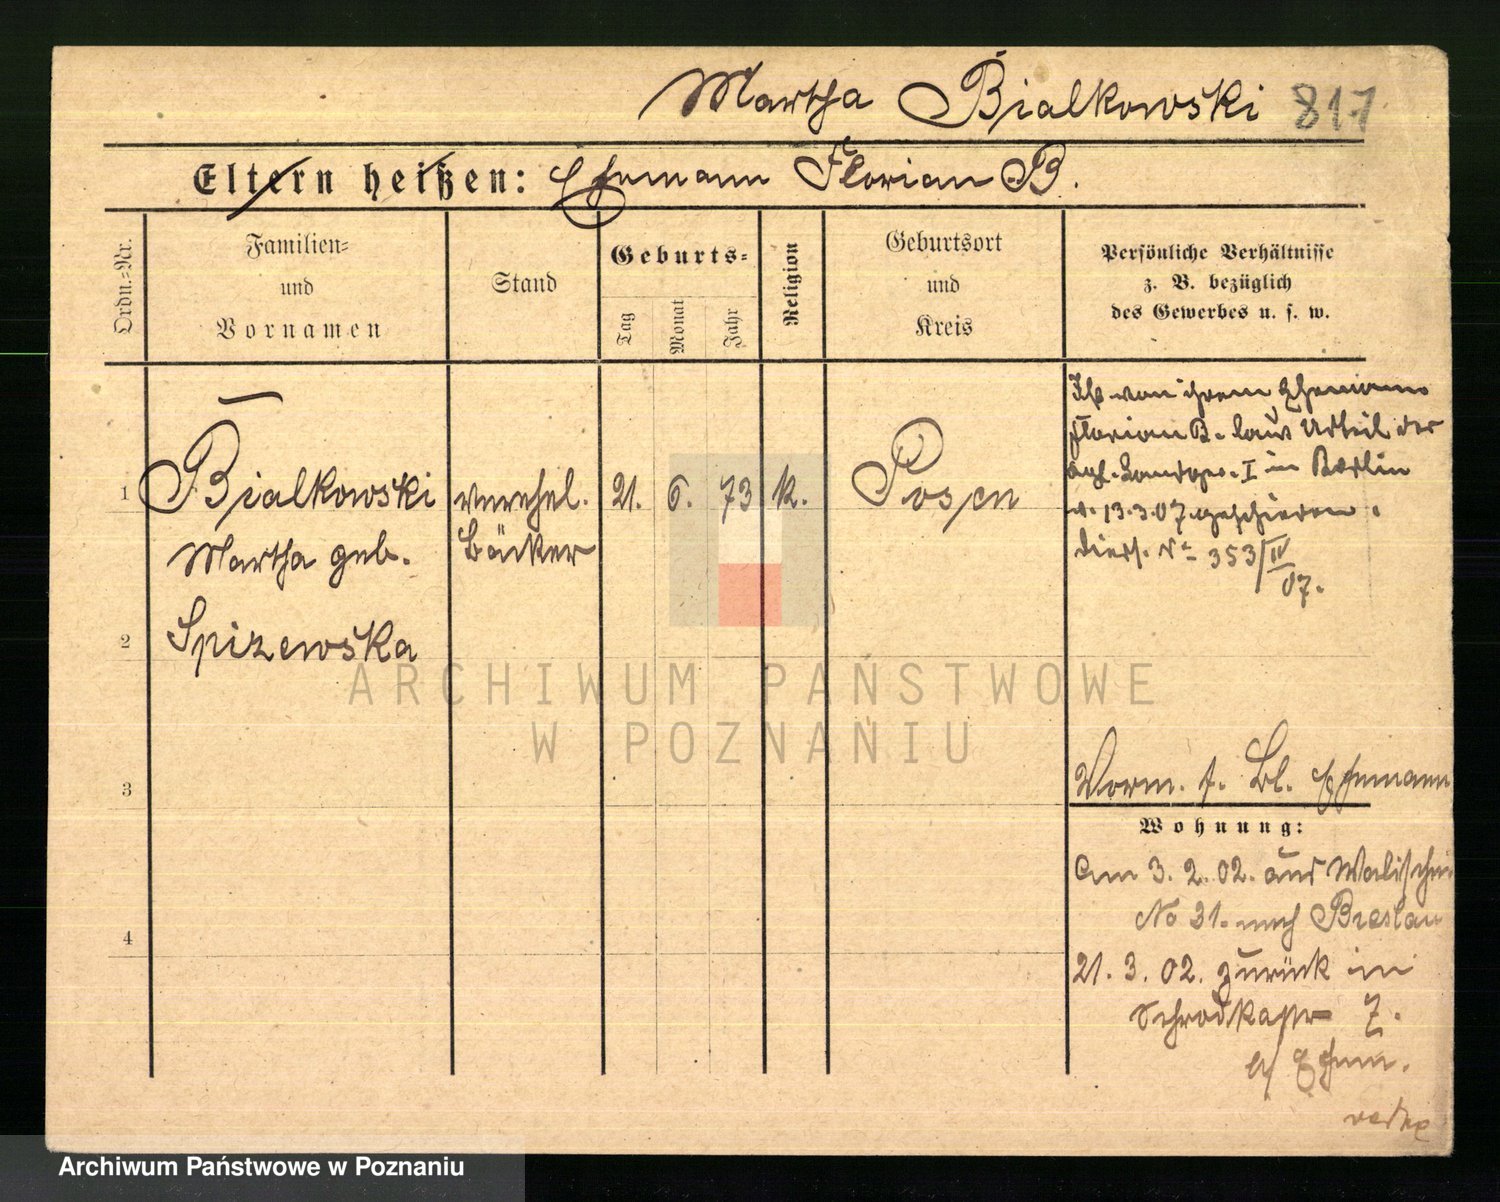 Martha Bialkowski 817
Eltern heißen: Ehemann Florian B.
Ordn.=Nr.
Familien=
und
Vornamen
Stand
Geburts=
Tag
Monat
Jahr
Religion
Geburtsort
und
Kreis
Persönliche Verhältnisse
z. B. bezüglich
des Gewerbes u. s. w.
1
Bialkowski
Martha geb.
Spizewska
verehel.
Bäcker
21. 6. 73 k.
Posen
Ist von ihrem Ehemann
Florian B. laut Urteil der
kgl. Landger. I in Berlin
v. 13.3.07 geschieden.
353/IV
07.
2
3
4
Vorm. f. Bl. Ehemann
Wohnung:
Am 3. 2. 02. aus Wallischei
No 31. nach Breslau
21. 3. 02. zurück in
7.
b/ Ehem.
ARCHIWUM PAŃSTWOWE
W POZNANIU
Archiwum Państwowe w Poznaniu